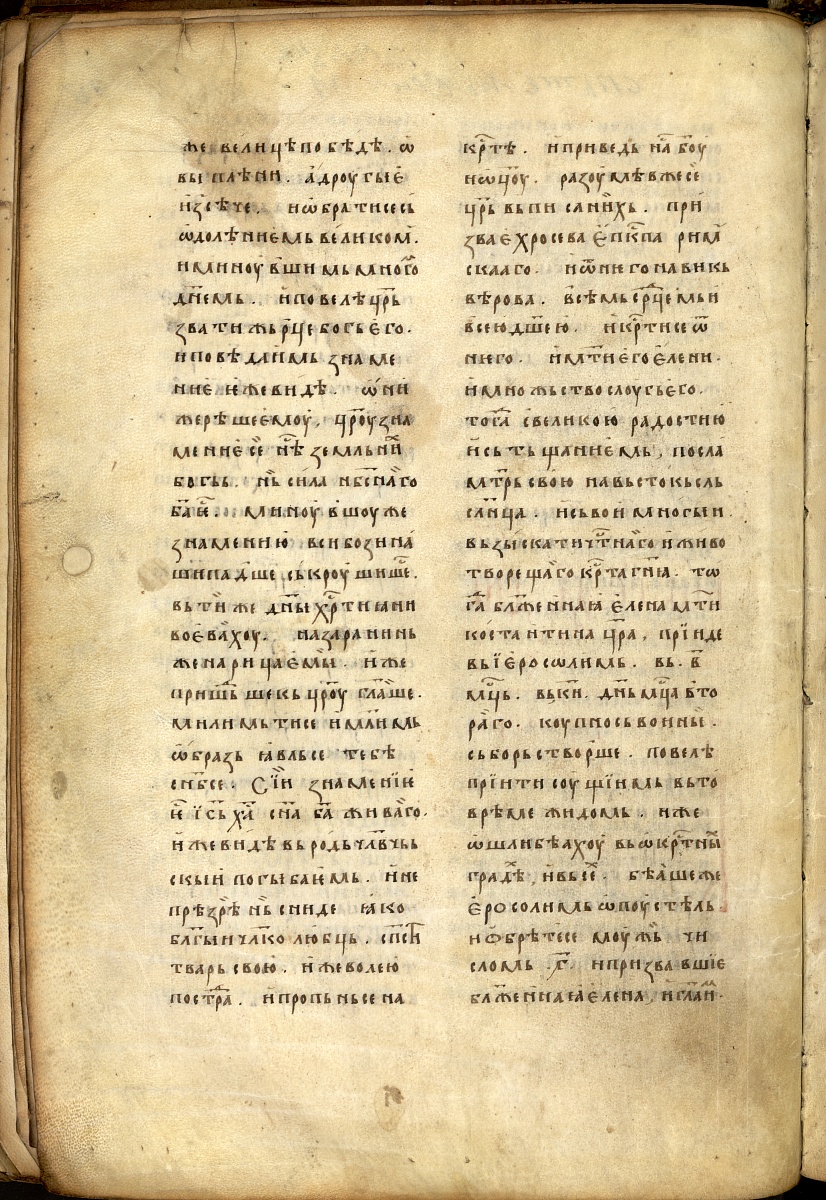 же велицѣ побѣдѣ. ѿ
вы плѣни. а дроугые
изсѣче. и ѡбратисесь
ѡдолѣниемь великом҃.
и миноувшимь многѡ
дн҃емь. и повелѣ цр҃ь
звати жьрце богь его.
и повѣда имь зна ме
ние еже видѣ. ѡни
же рѣше емоу. цр҃оу зна
мение се нѣ҃ земльни
богь. нь сила нбс҃наго
ба҃ е҃. миноувшоу же
знамению вси бози на
ши падше скроушише.
вь ти же дн҃ы хр҃тиꙗни
воеваху. назаранинь
же нарицаеми. иже
пришьⷣше кь цр҃оу гл҃аше.
милимьтисе и млимь
ѡбразь ꙗвльсе тебѣ
снб҃се. Сіи знаменїе
е҃ ї҃сь х҃а сн҃а ба҃ живаго.
иже видѣ вь родь чл҃вчь
скыи погыбаемь. и не
прѣзрѣ нь сниде ꙗко
блг҃ыи чл҃колюбць. спс҃ти
тварь свою. иже волею
постр҃да. и пропьньсе на
кр҃тѣ. и приведь на б҃оу
и ѡц҃оу. разоумѣв же се
цр҃ь вь писаниихь. при
зва ехросева епк҃па рим
скаго. и ѿ него навикь
вѣрова. всѣмь ср҃цемь и
всею дш҃ею. и кр҃тисе ѿ
него. и мт҃и его елени.
и множьство слоугь его.
тогⷣа с великою радостию
и сь тьщаниемь, посла
мт҃рь свою на вьстокь сль
сл҃нца. и сь вои многыи.
вьзыскати чⷭтнаго и живо
творещаго кр҃та гн҃ꙗ. то
гⷣа блж҃еннаꙗ елена мт҃и
костантина цр҃а, прїиде
вь їеросолимь. вь. в҃
мц҃ь. вь к҃и. дн҃ь мц҃а вто
раго. коупно сь воины.
сьборь створше. повелѣ
прїити соущїимь вь то
врѣме жидомь. иже
ѡшли бѣахоу вь ѡкрⷭтныи
градѣ, и вьсе. бѣаше же
еросолимь ѡпоустѣль.
и ѡбрѣтесе моужь чи
сломь .г҃. и призвавшїе
блж҃еннаꙗ елена, и гл҃аи.